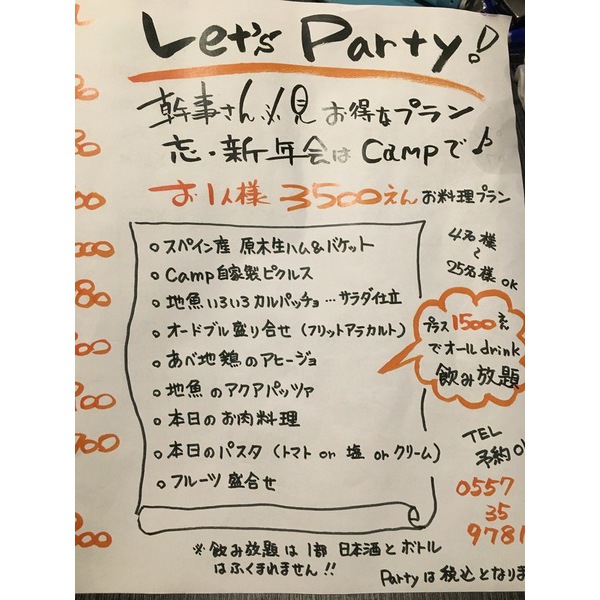 Let's Party!
幹事さん必見 お得なプラン
忘・新年会は Campで♪
お1人様 3500えん お料理プラン
4名様
~
25名様 OK
○ スペイン産 原木生ハム&バケット
○ Camp自家製ピクルス
○ 地魚いろいろカルパッチョ…サラダ仕立
○ オードブル盛り合せ (フリットアラカルト)
○ あべ地鶏のアヒージョ
○ 地魚のアクアパッツァ
○ 本日のお肉料理
○ 本日のパスタ (トマト or 塩 or クリーム)
○ フルーツ盛合せ
プラス1500えん
でオールdrink
飲み放題
TEL
予約OK
0557
35
9781
※飲み放題は1部 日本酒とボトル
はふくまれません!!
Partyは税込となりま